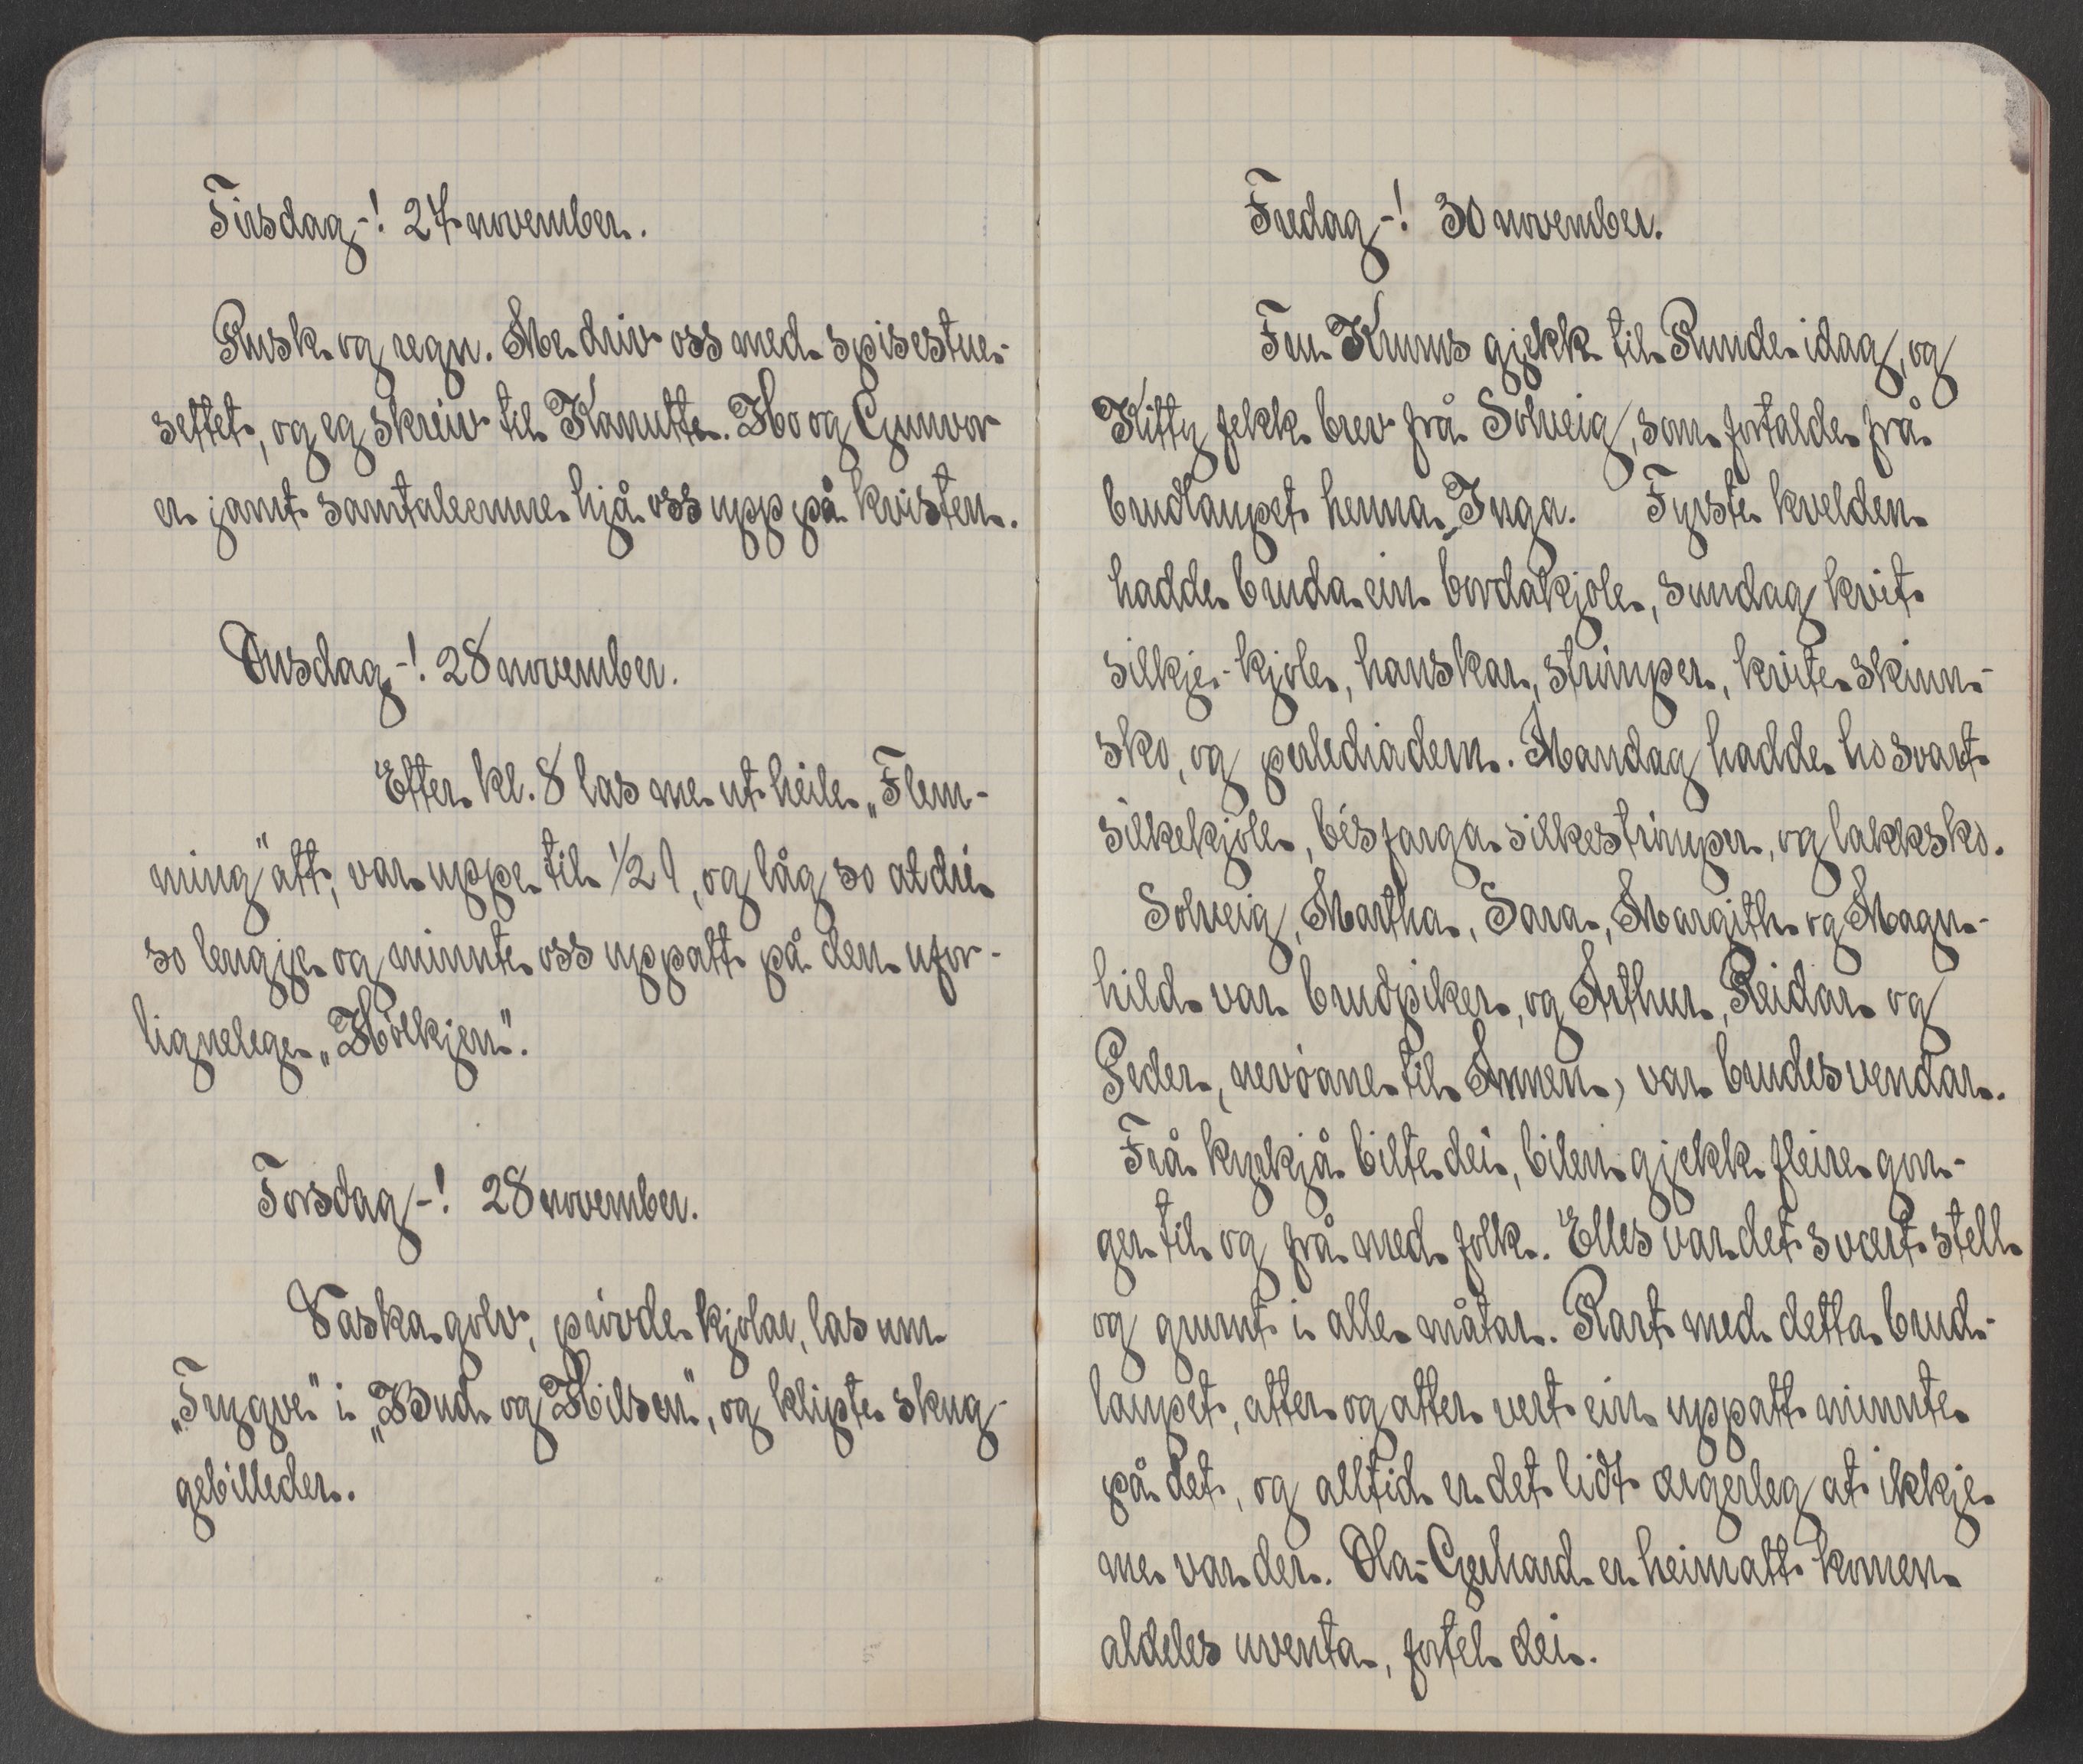 Tirsdag-! 27 november.
Rusk og regn. Me driv oss med spisestue-
settet, og eg skreiv til Kanutte. Ho og Gunvor
er jamt samtaleemne hjå oss upp på kvisten.
Onsdag-! 28 november.
Etter kl. 8 las me ut heile „Flem-
ming" att, var uppe til 1/2 1, og låg so aldri
so lengje og minnte oss uppatt på den ufor-
lignelege „Hölkjen".
Torsdag-! 28 november.
Vaska golv, prøvde kjolar, las um
„Trygve" i „Bud og Hilsen", og klipte skug-
gebilleder.
Fredag-! 30 november.
Fru Krums gjekk til Runde idag, og
Kitty fekk brev frå Solveig, som fortalde frå
brudlaupet henna Inga. Fyrste kvelden
hadde bruda ein bordakjole, sundag kvit
silkje-kjole, hanskar, strømper, kvite skinn-
sko, og perlediadem. Mandag hadde ho svart
silkekjole, bésfarga silkestrømper, og lakksko.
Solveig, Martha, Sara, Margith og Magn-
hild var brudpiker, og Arthur, Reidar og
Peder, (nevøane til Annen), var brudesvendar.
Frå kyrkjå bilte dei, bilen gjekk fleire gon-
ger til og frå med folk. Elles var det svært stell
og grumt i alle måtar. Rart med detta brud-
laupet, atter og atter vert ein uppatt minnte
på det, og alltid er det lidt ærgerleg at ikkje
me var der. Ola-Gerhard er heimatt komen
aldeles uventa, fortel dei.